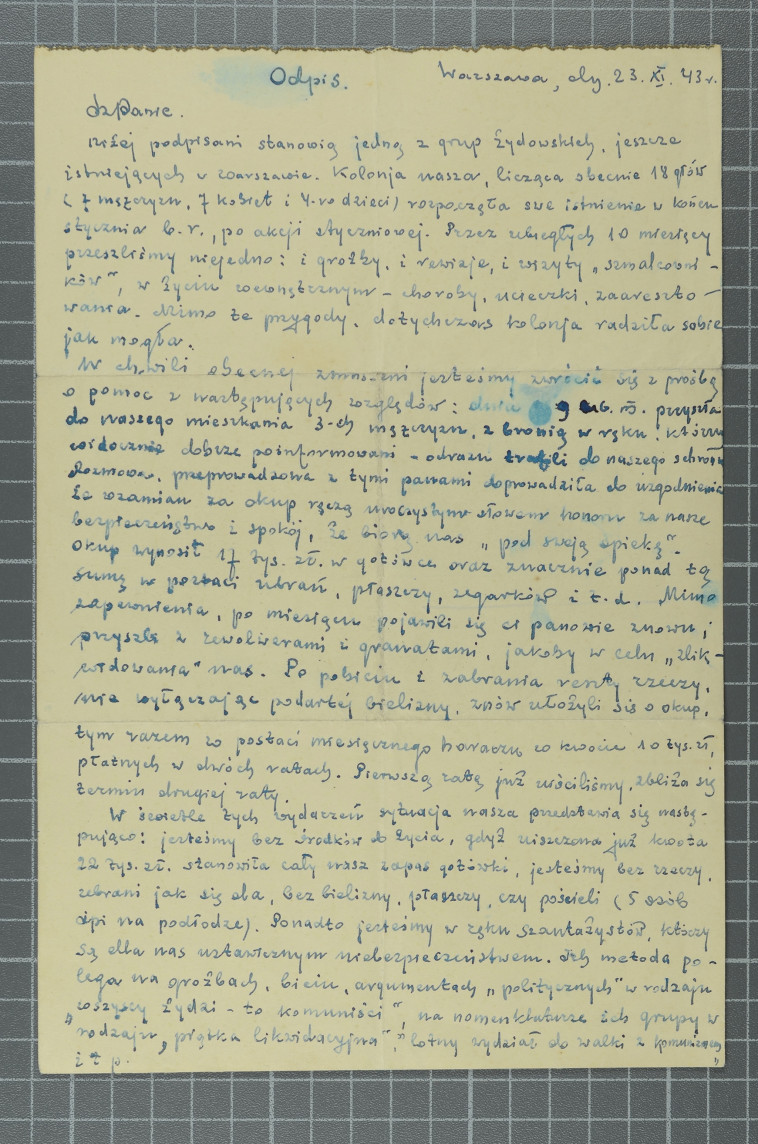 Odpis. Warszawa, dn. 23. XI. 43 r.
Sz Panie.
Niżej podpisani stanowią jedną z grup żydowskich, jeszcze
istniejących w Warszawie. Kolonja nasza, licząca obecnie 18 głów
(7 mężczyzn, 7 kobiet i 4-ro dzieci) rozpoczęła swe istnienie w końcu
stycznia b.r., po akcji styczniowej. Przez ubiegłych 10 miesięcy
przeszliśmy niejedno: i groźby, i rewizje, i wizyty „szmalcowni-
ków", w życiu wewnętrznym – choroby, ucieczki, zaareszto-
wania. Mimo te przygody, dotychczas kolonja radziła sobie
jak mogła.
W chwili obecnej zmuszeni jesteśmy zwrócić się z prośbą
o pomoc z następujących względów: dnia 9 ub. m. przyszła
do naszego mieszkania 3-ch mężczyzn, z bronią w ręku, którzy
widocznie dobrze poinformowani – odrazu trafili do naszego schronu
Rozmowa, przeprowadzona z tymi panami doprowadziła do uzgodnienia
że wzamian za okup ręczą uroczystym słowem honoru za nasze
bezpieczeństwo i spokój, że biorą nas „pod swoją opiekę".
Okup wynosił 17 tys. zł. w gotówce oraz znacznie ponad tę
sumę w postaci ubrań, płaszczy, zegarków i t.d. Mimo
zapewnienia, po miesiącu pojawili się ci panowie znowu,
przyszli z rewolwerami i granatami, jakoby w celu „zlik-
widowania" nas. Po pobiciu i zabrania reszty rzeczy,
nie wyłączając podartej bielizny, znów ułożyli się o okup,
tym razem w postaci miesięcznego haraczu w kwocie 10 tys. zł,
płatnych w dwóch ratach. Pierwszą ratę już uiściliśmy, zbliża się
termin drugiej raty.
W świetle tych wydarzeń sytuacja nasza przedstawia się nastę-
pująco: jesteśmy bez środków do życia, gdyż uiszczona już kwota
22 tys. zł. stanowiła cały nasz zapas gotówki, jesteśmy bez rzeczy,
ubrani jak się da, bez bielizny, płaszczy, czy pościeli (5 osób
śpi na podłodze). Ponadto jesteśmy w ręku szantażystów, którzy
są dla nas ustawicznym niebezpieczeństwem. Ich metoda po-
lega na groźbach, biciu, argumentach „politycznych" w rodzaju
„wszyscy Żydzi – to komuniści", na nomenklaturze ich grupy w
rodzaju „piątka likwidacyjna", „lotny wydział do walki z komunizmem"
i t p.